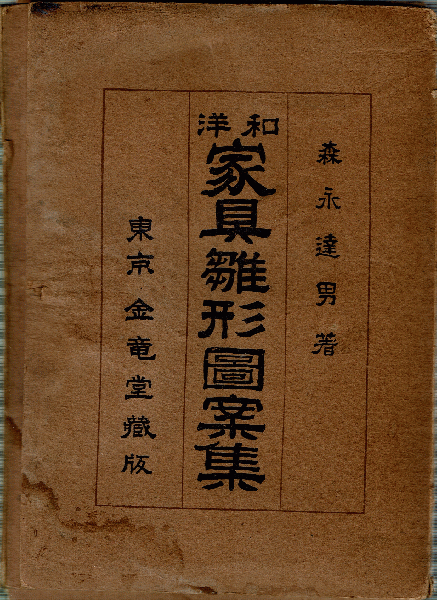 森永達男著
和洋
家具雛形圖案集
東京金竜堂藏版